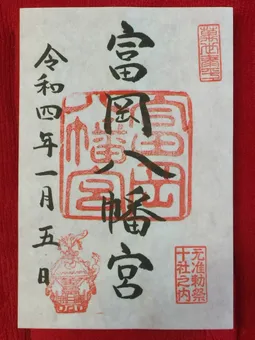 富岡八幡宮
令和四年一月五日
富岡
八幡宮
元准勅祭
十社之内